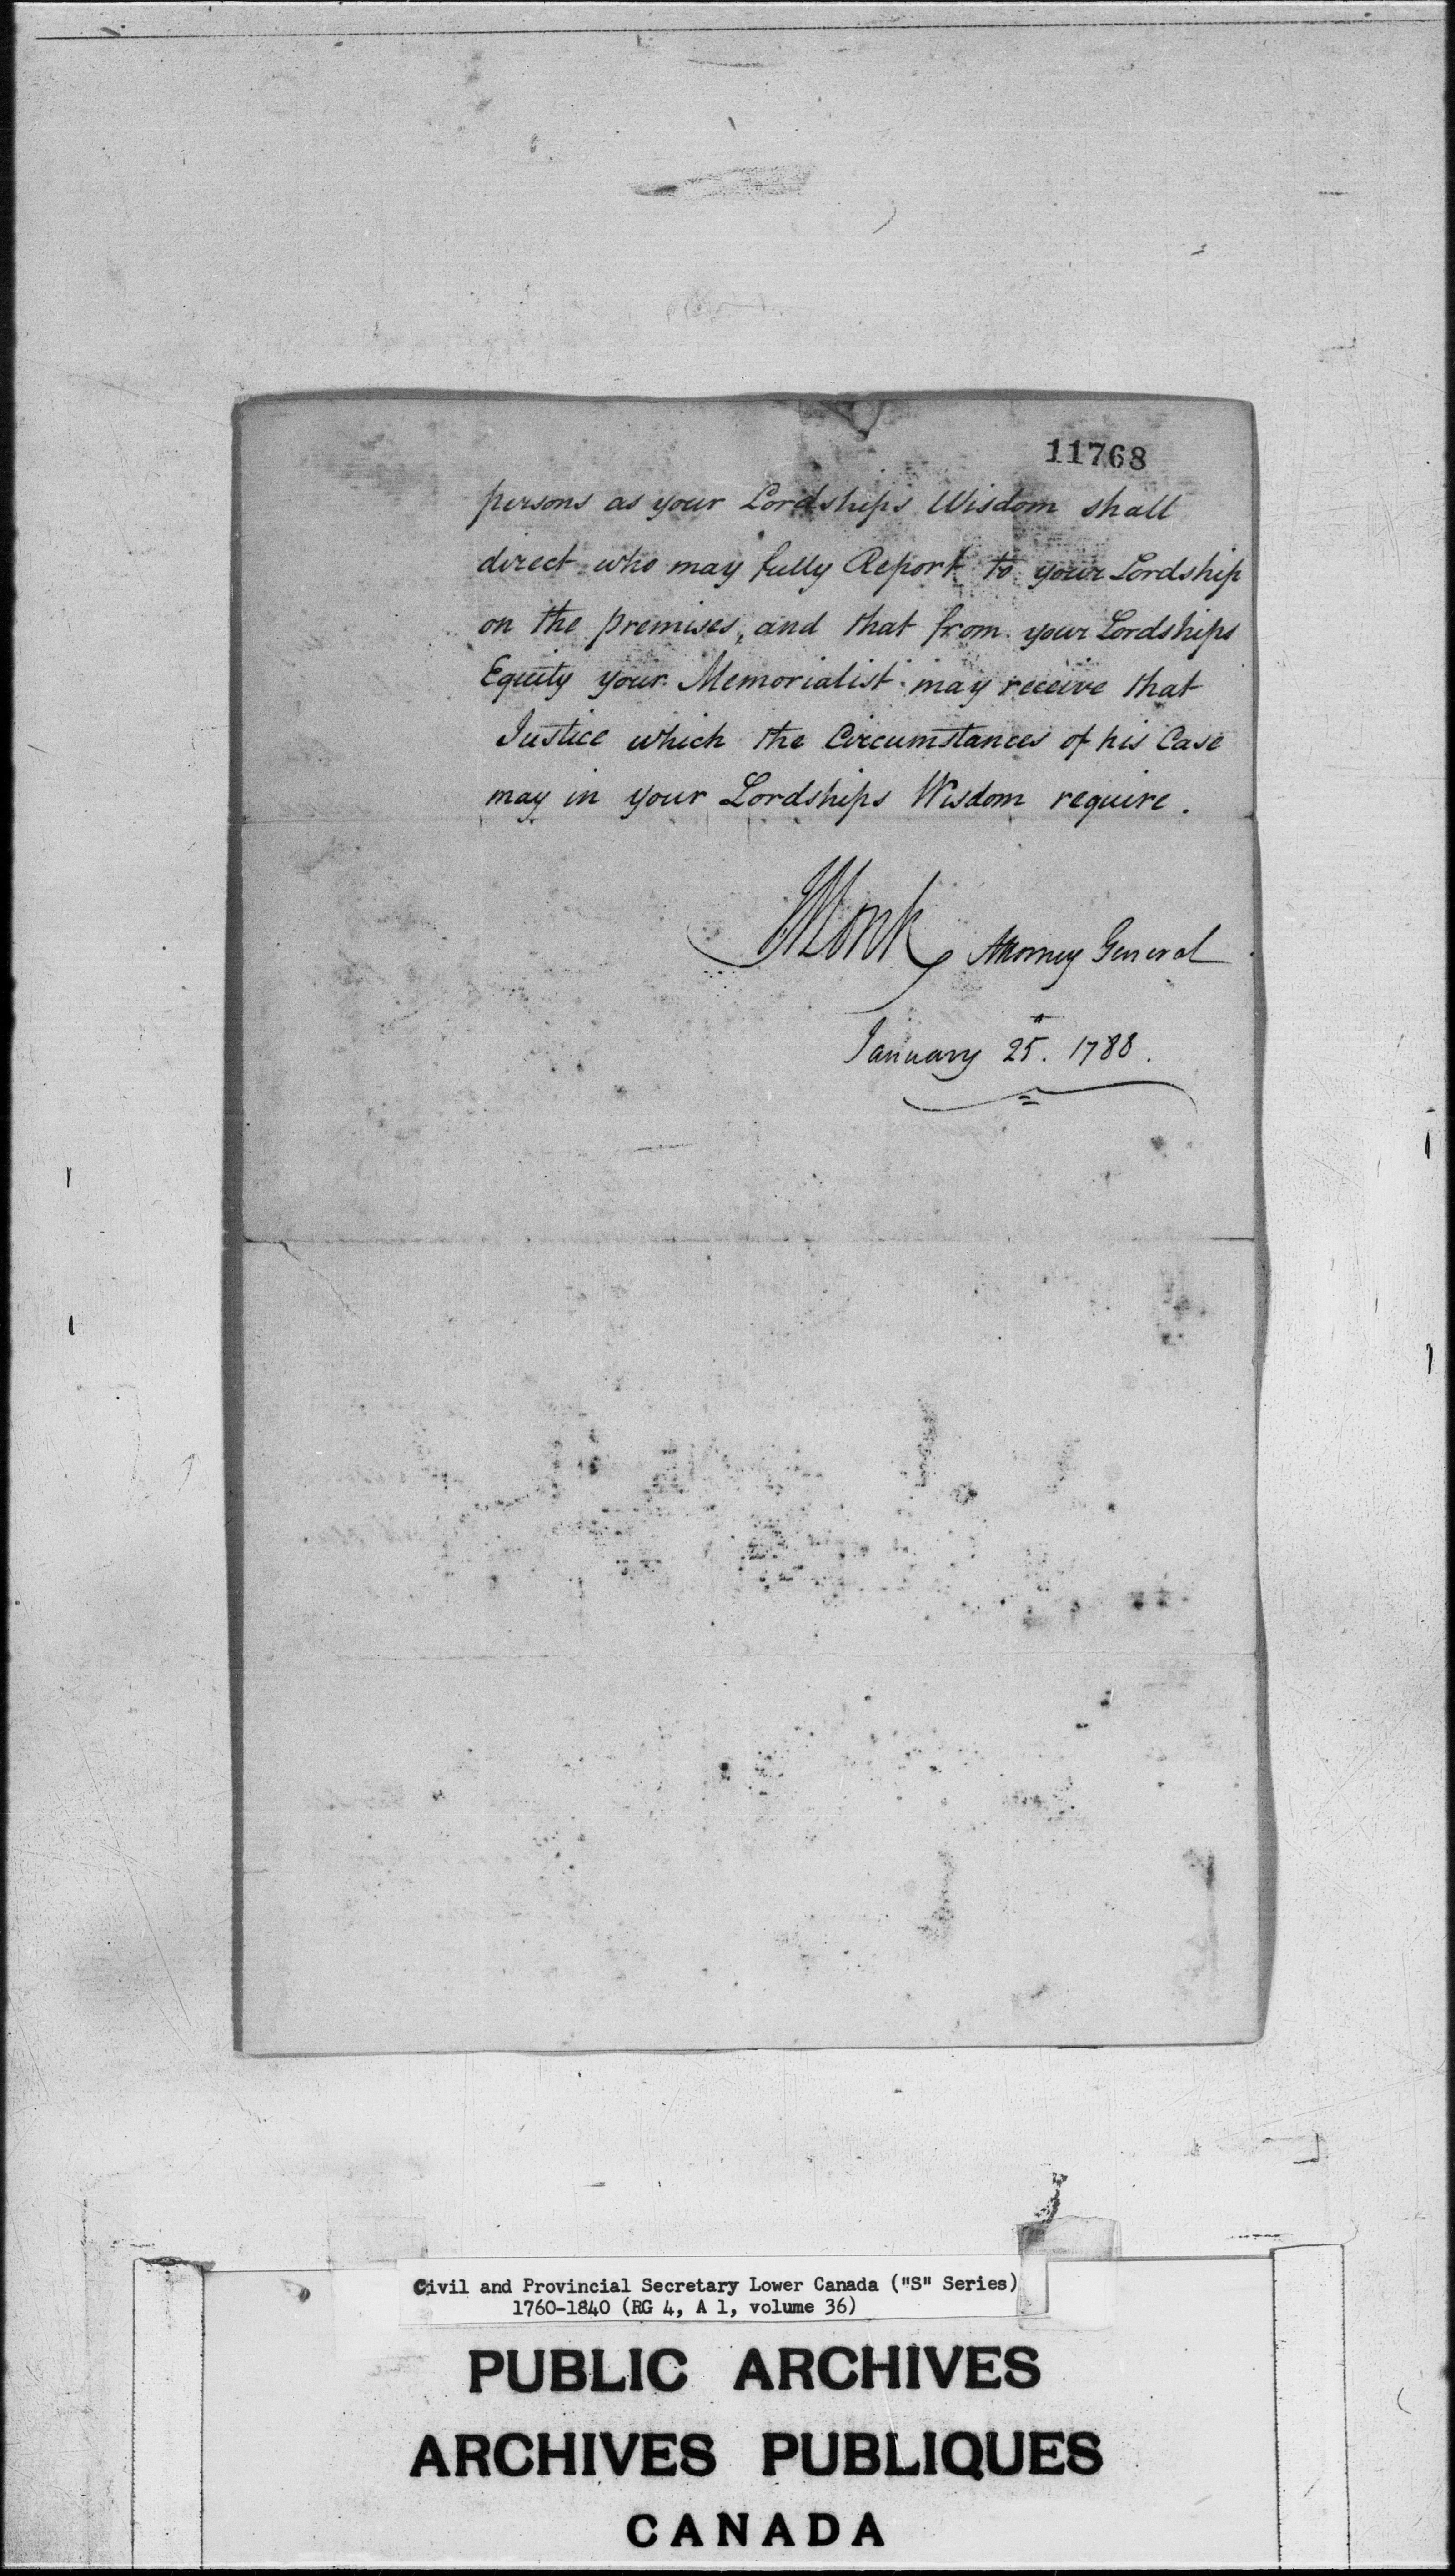 11768
persons as your Lordships Wisdom shall
direct who may fully Report to your Lordship
on the premises, and that from your Lordships
Equity your Memorialist may receive that
Justice which the Circumstances of his Case
may in your Lordships Wisdom require.
JMonk, Attorney General
January 25. 1788.
Civil and Provincial Secretary Lower Canada ("S" Series)
1760-1840 (RG 4, A 1, volume 36)
PUBLIC ARCHIVES
ARCHIVES PUBLIQUES
CANADA